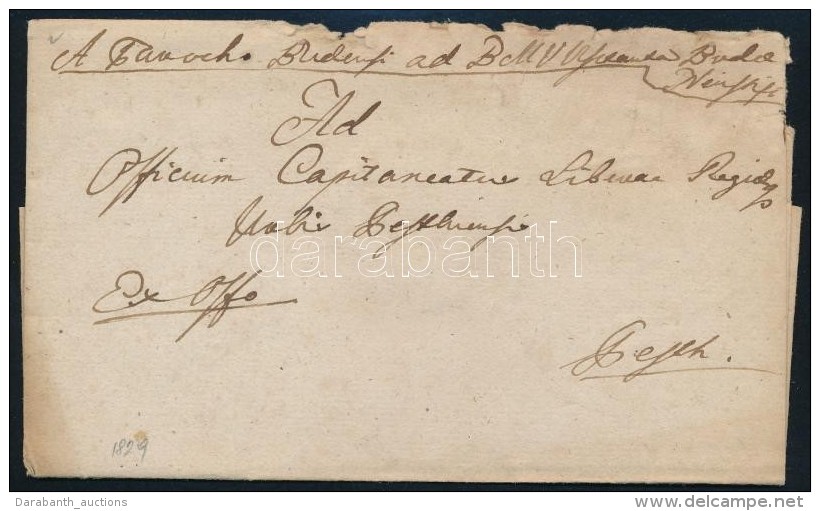 A Parocho Budensi ad BMV Buda
Ad
Officium Capitaneatus Liberae Regiaeqs
Urbis Pesthiensis
darabanth
Ex Offo
Pesth.
1829
Darabanth_auctions
www.delcampe.net